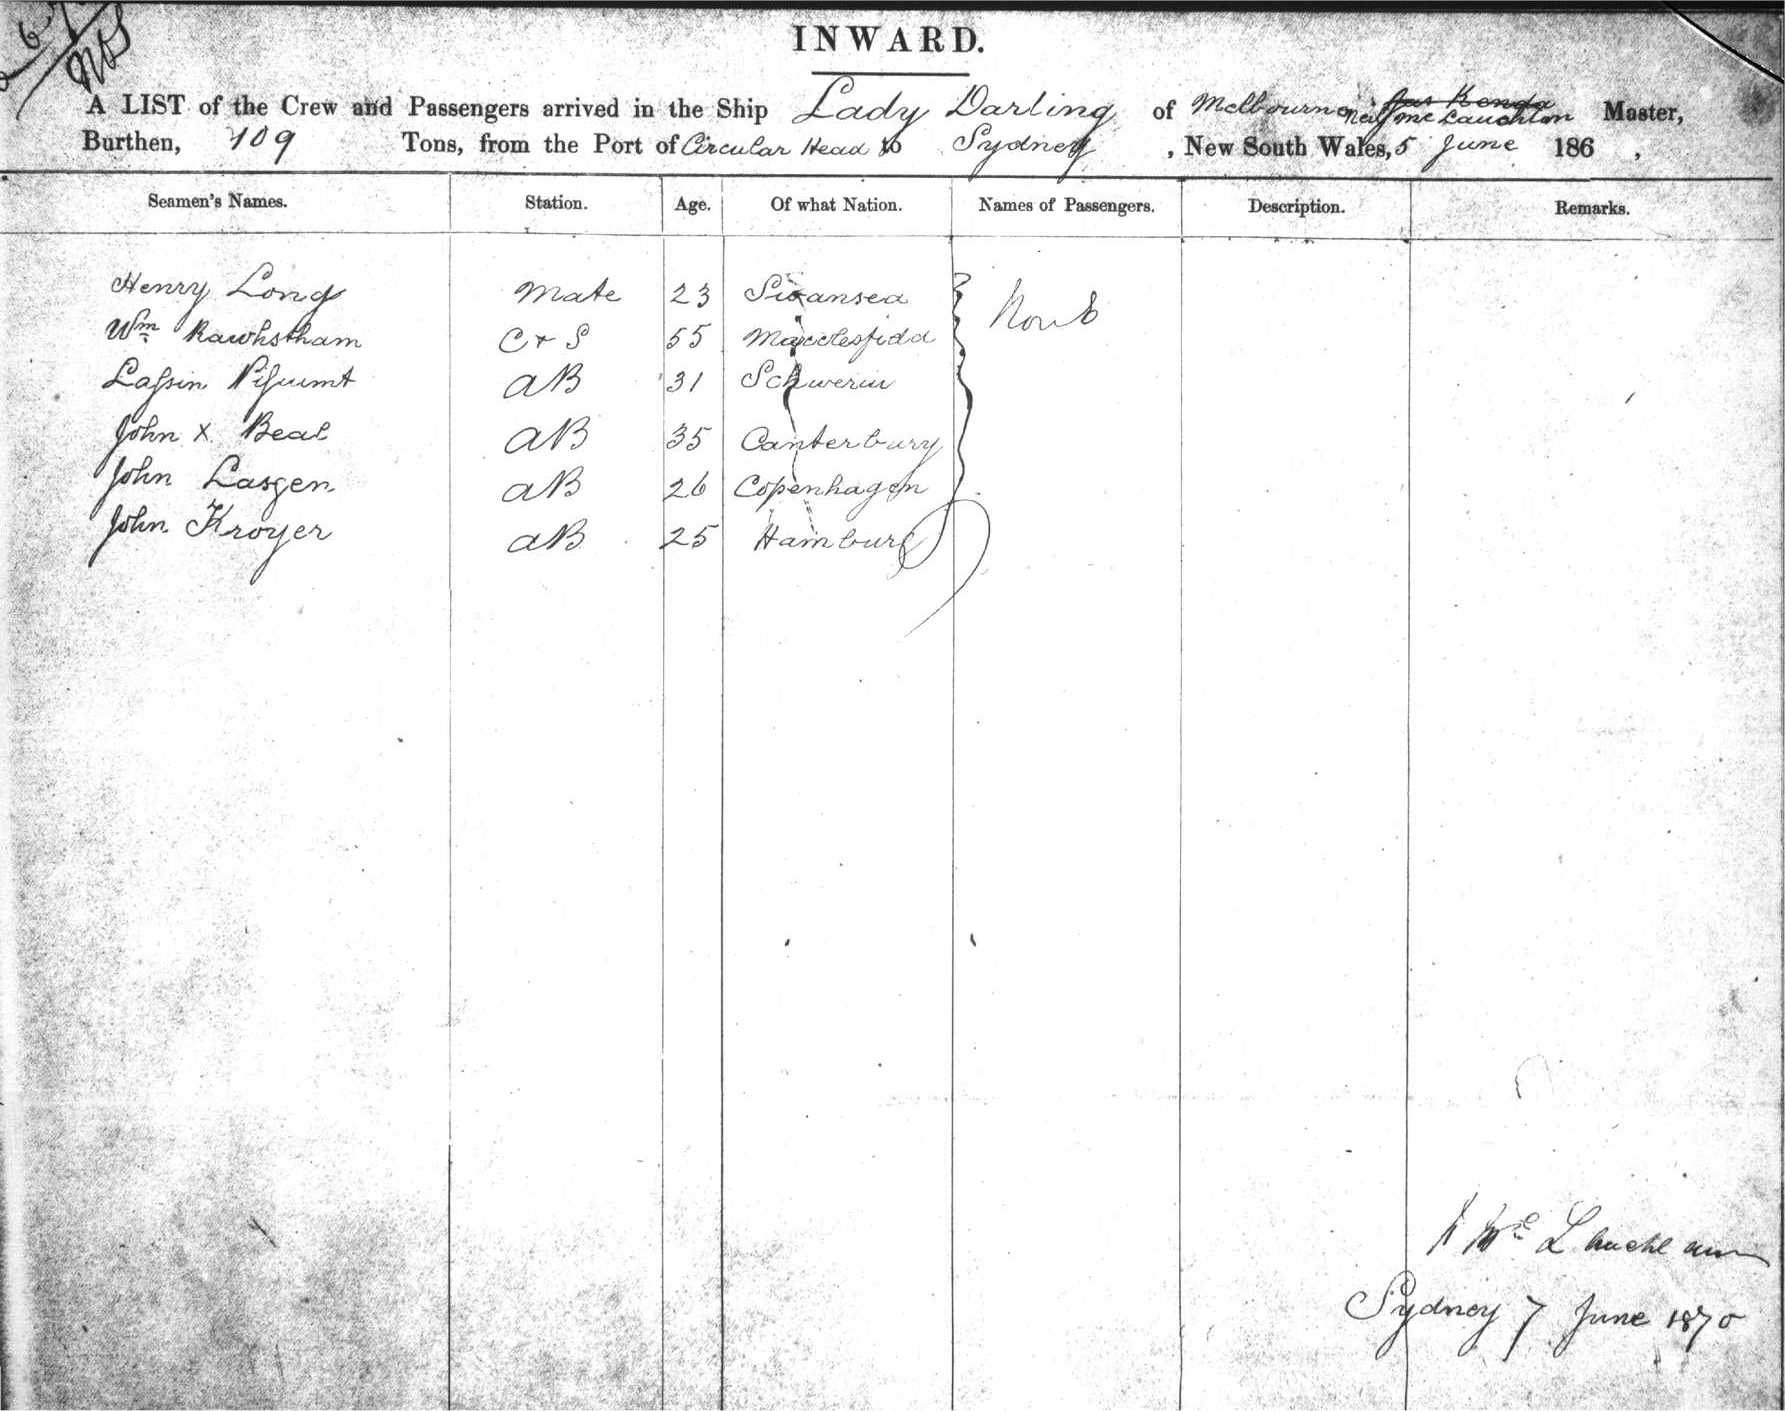 INWARD.
A LIST of the Crew and Passengers arrived in the Ship Lady Darling of Melbourne Neil McLauchlan Master,
Burthen, 109 Tons, from the Port of Circular Head to Sydney, New South Wales, 5 June 186 ,
Seamen's Names. Station. Age. Of what Nation. Names of Passengers. Description. Remarks.
Henry Long Mate 23 Swansea None
Wm Rawhstham C & S 55 Macclesfield
Lassin AB 31 Schwerin
John X Beal AB 35 Canterbury
John Lasgen AB 26 Copenhagen
John Kroyer AB 25 Hamburg
N Mc Lauchlan
Sydney 7 June 1870